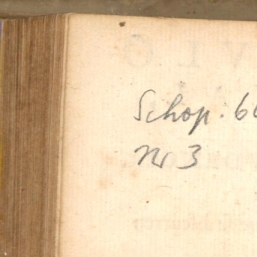 Schop. 66
Nr 3